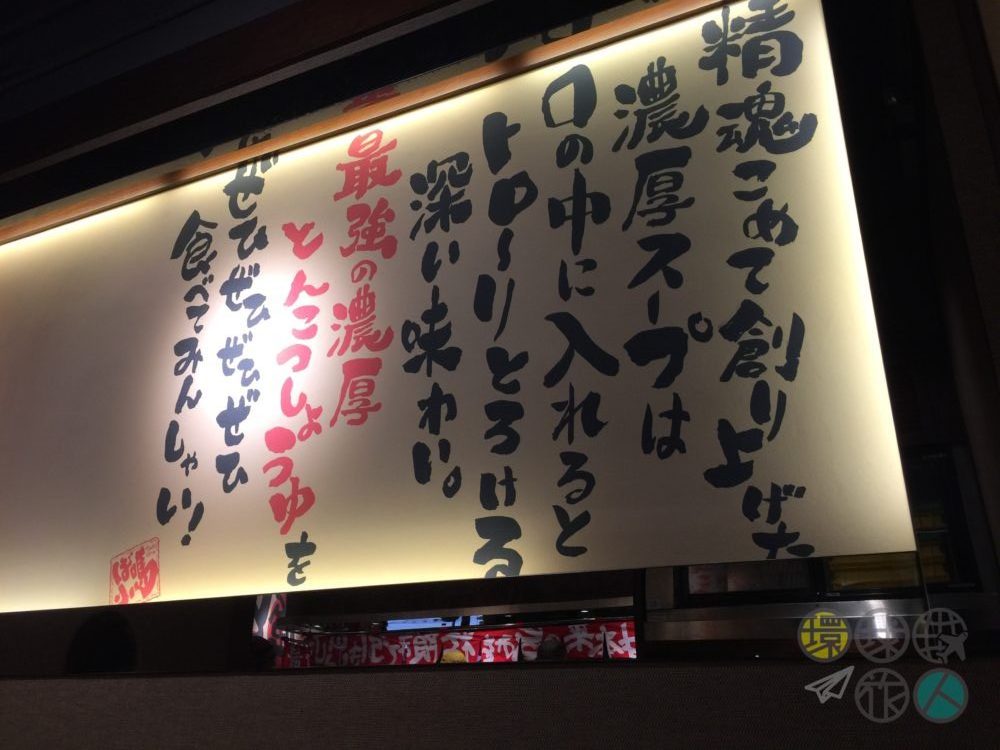 精魂こめて創り上げた
濃厚スープは
口の中に入れると
トロ〜リとろける
深い味わい。
最強の濃厚
とんこつしょうゆを
ぜひぜひぜひぜひ
食べてみんしゃい！
環球
旅人